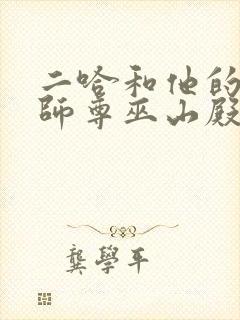 二哈和他的
師尊巫山殿
龔學平